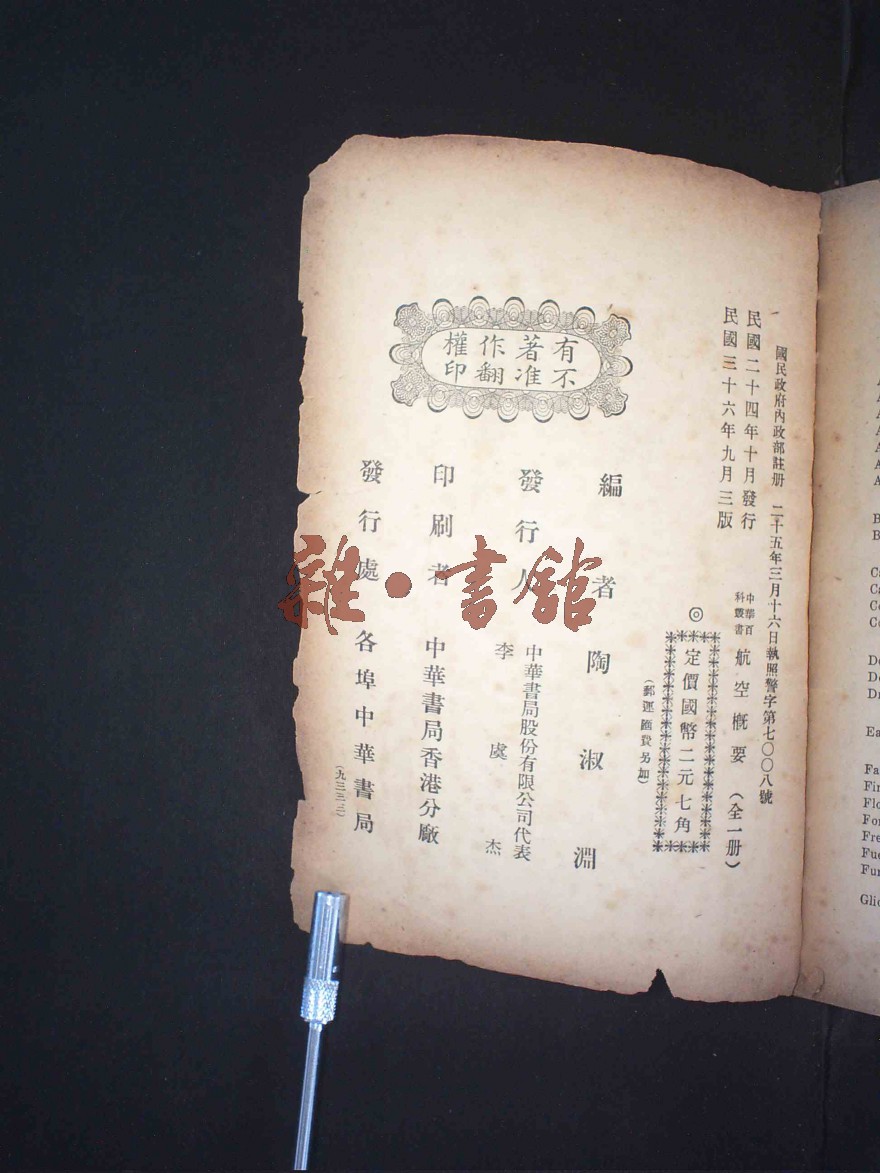 國民政府內政部註册 二十五年三月十六日執照警字第七〇〇八號
民國二十四年十月發行
民國三十六年九月三版
中華百科叢書 航空概要 (全一册)
◎定價國幣二元七角
(郵運匯費另加)
有著作權
不准翻印
編者 陶淑淵
發行人 中華書局股份有限公司代表
李虞杰
印刷者 中華書局香港分廠
發行處 各埠中華書局
(九三三三)
雜·書館